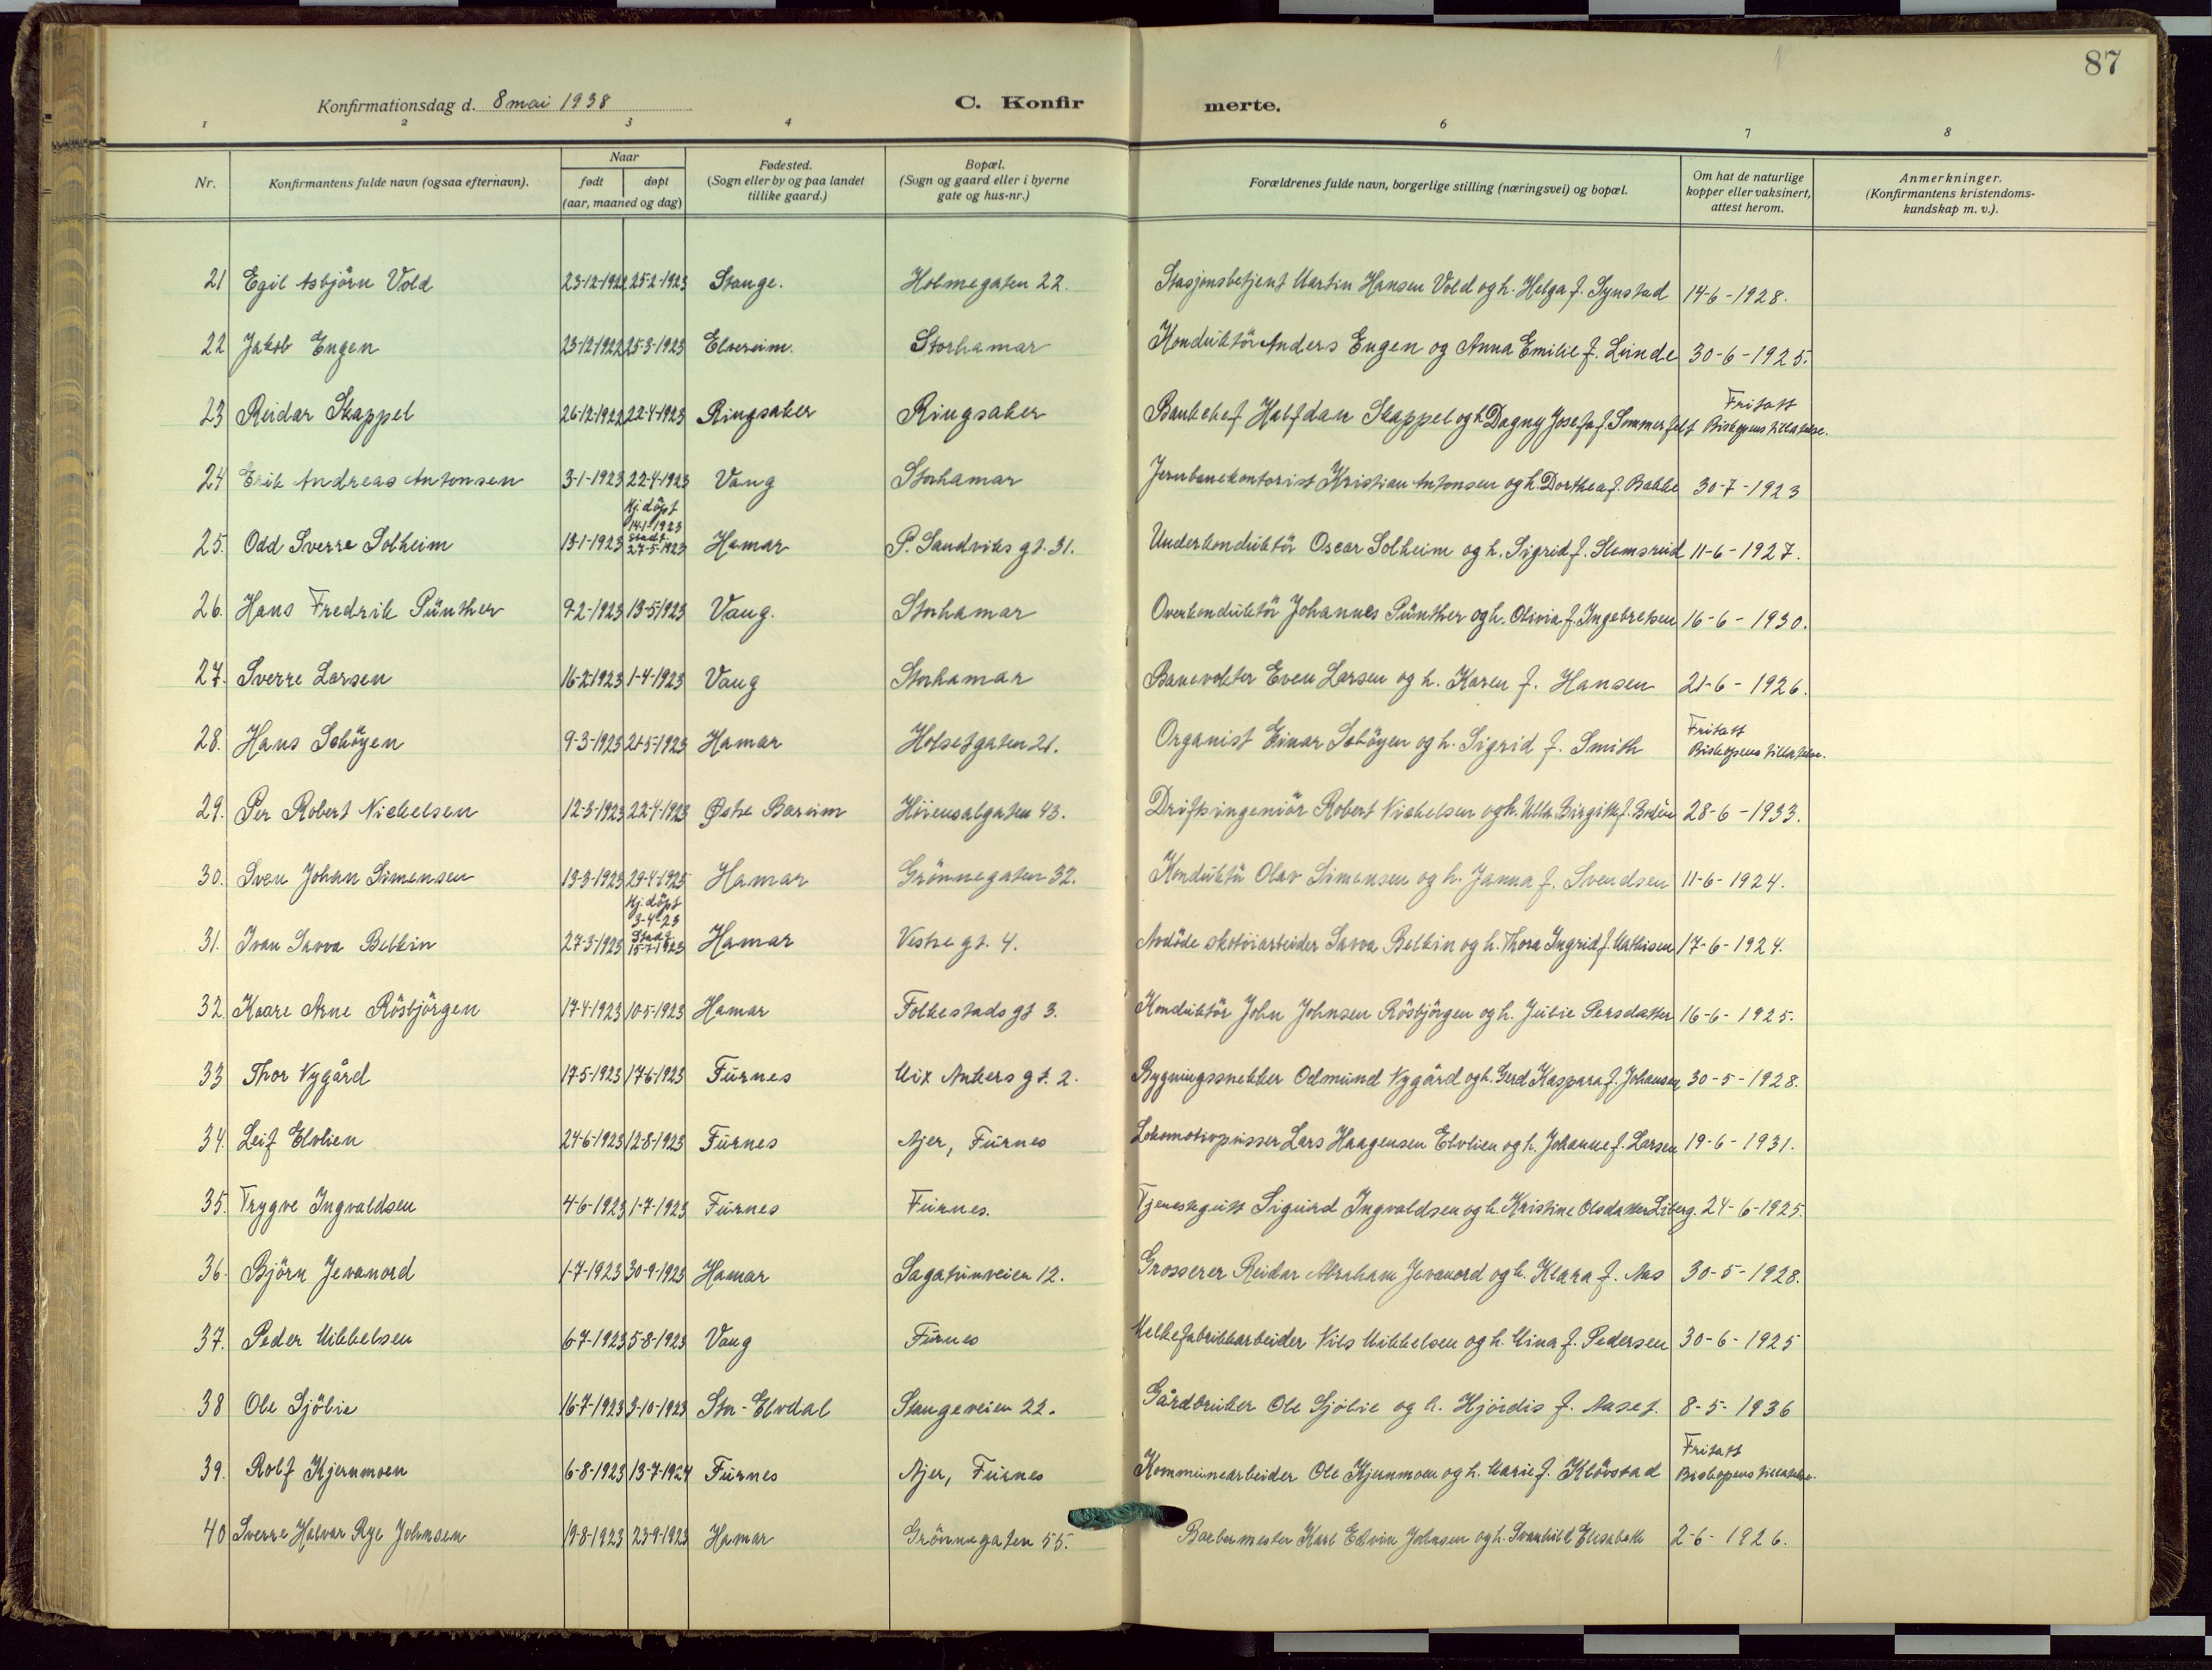 87
Konfirmationsdag d. 8 mai 1938 C. Konfirmerte.
1 2 3 4 6 7 8
Nr. Konfirmantens fulde navn (ogsaa efternavn). Naar født døpt (aar, maaned og dag) Fødested. (Sogn eller by og paa landet tillike gaard.) Bopæl. (Sogn og gaard eller i byerne gate og hus-nr.) Forældrenes fulde navn, borgerlige stilling (næringsvei) og bopæl. Om hat de naturlige kopper eller vaksinert, attest herom. Anmerkninger. (Konfirmantens kristendomskundskap m. v.).
21 Egil Asbjörn Vold 23-12-1922 25-2-1923 Stange. Holmegaten 22. Stasjonsbetjent Martin Hansen Vold og h. Helga f. Synstad 14-6-1928.
22 Jakob Engen 23-12-1922 25-3-1923 Elvereim. Storhamar Konduktör Anders Engen og Anna Emilie f. Lunde 30-6-1925.
23 Reidar Skappel 26-12-1922 22-4-1923 Ringsaker Ringsaker Bankchef Halfdan Skappel og h. Dagny Josefa f. Sommerfelt Fritatt Biskopens tillatelse.
24 Erik Andreas Antonsen 3-1-1923 22-4-1923 Vang Storhamar Jernbanekontorist Kristian Antonsen og h. Dorthea f. Bakke 30-7-1923
25. Odd Sverre Solheim 13-1-1923 Hj. döpt 14-1-1923 stadf. 27-5-1923 Hamar P. Sandviks gt. 31. Underkonduktör Oscar Solheim og h. Sigrid f. Slemsreid 11-6-1927.
26. Hans Fredrik Günther 9-2-1923 13-5-1923 Vang. Storhamar Overkonduktör Johannes Günther og h. Olivia f. Ingebretsen 16-6-1930.
27. Sverre Larsen 16-2-1923 1-4-1923 Vang Storhamar Banevokter Even Larsen og h. Karen f. Hansen 21-6-1926.
28. Hans Schöyen 9-3-1923 21-5-1923 Hamar Holsetgaten 21. Organist Einar Schöyen og h. Sigrid f. Smith Fritatt Biskopens tillatelse.
29. Per Robert Nickelsen 12-3-1923 22-4-1923 Østre Bærum Höiensalgaten 43. Driftsingeniör Robert Nickelsen og h. Ulla Birgitte f. 28-6-1933.
30. Sven Johan Simensen 13-3-1923 29-4-1925 Hamar Grönnegaten 32. Konduktör Olav Simensen og h. Janna f. Svendsen 11-6-1924.
31. Ivan Savva Belkin 27-3-1923 Hj. döpt 3-4-23 Stadf. 15-7-1923 Hamar Vestre gt. 4. Avdöde skotöiarbeider Savva Belkin og h. Thora Ingrid f. Mathisen 17-6-1924.
32. Kaare Arne Rösbjörgen 17-4-1923 10-5-1923 Hamar Folkestads gt 3. Konduktör John Johnsen Rösbjörgen og h. Julie Persdatter 16-6-1925.
33 Thor Nygård 17-5-1923 17-6-1923 Furnes Mix Ankers gt. 2. Bygningssnekker Odmund Nygård og h. Gerd Kaspara f. Johansen 30-5-1928.
34. Leif Elvlien 24-6-1923 12-8-1923 Furnes Ajer, Furnes Lokomotivpusser Lars Haagensen Elvlien og h. Johanne f. Larsen 19-6-1931.
35. Trygve Ingvaldsen 4-6-1923 1-7-1923 Furnes Furnes. Tjenestegutt Sigurd Ingvaldsen og h. Kristine Olsdatter Liberg. 24-6-1925.
36. Björn Jevanord 1-7-1923 30-9-1923 Hamar Sagatunveien 12. Grosserer Reidar Abraham Jevanord og h. Klara f. Aas 30-5-1928.
37. Peder Mikkelsen 6-7-1923 5-8-1923 Vang Furnes Melkefabrikkarbeider Nils Mikkelsen og h. Mina f. Pedersen 30-6-1925
38 Ole Sjölie 16-7-1923 3-10-1923 Stor-Elvdal Stangeveien 22. Gårdbruker Ole Sjölie og h. Hjördis f. Aaset. 8-5-1936
39. Rolf Kjernmoen 6-8-1923 13-7-1924 Furnes Ajer, Furnes Kommunearbeider Ole Kjernmoen og h. Marie f. Klövstad Fritatt Biskopens tillatelse.
40 Sverre Halvar Rye Johnsen 19-8-1923 23-9-1923 Hamar Grönnegaten 55. Barbermester Karl Edvin Johnsen og h. Svanhild Elisabeth 2-6-1926.